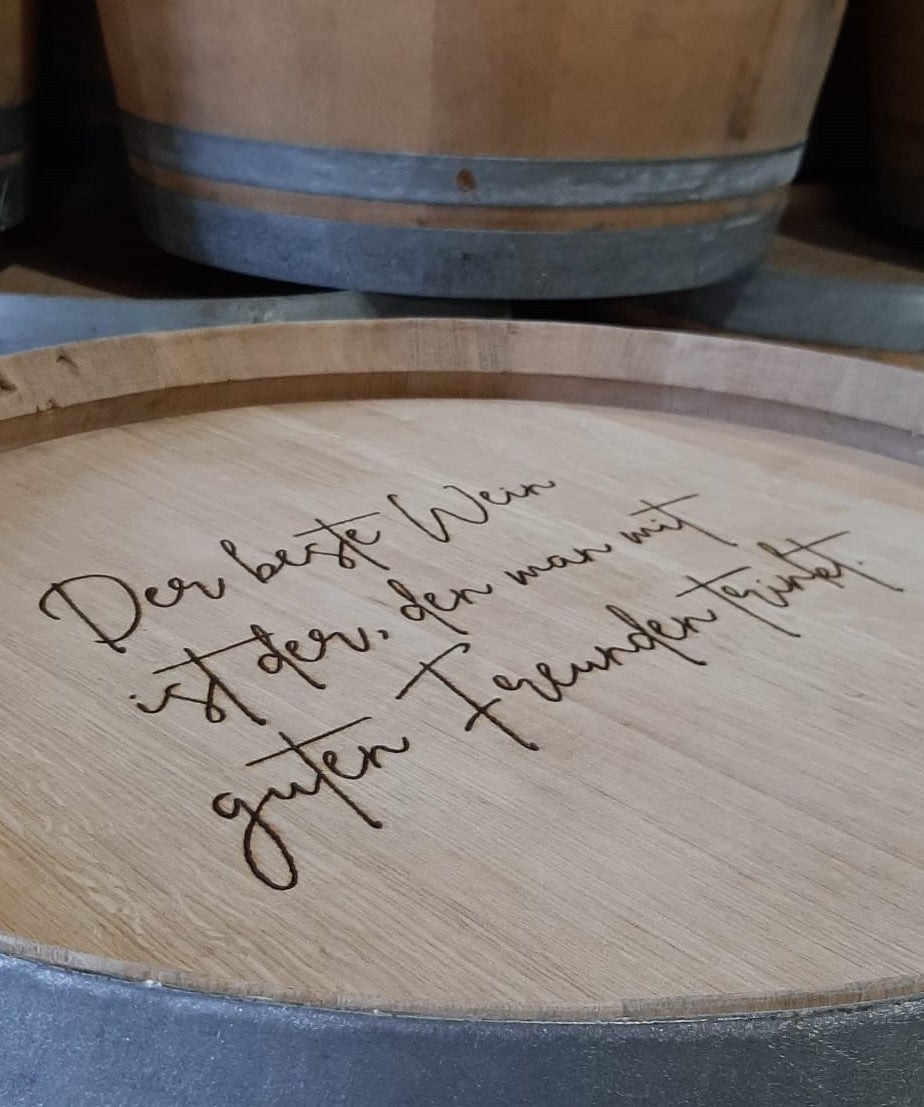 Der beste Wein
ist der, den man mit
guten Freunden trinkt.